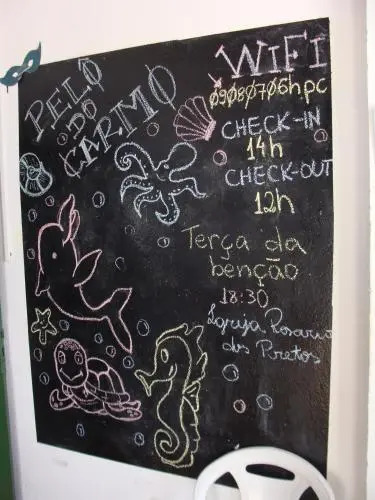 PELÔ
DO
CARMO
WIFI
09080706hpc
CHECK-IN
14h
CHECK-OUT
12h
Terça da
benção
18:30
Igreja Rosario
dos Pretos